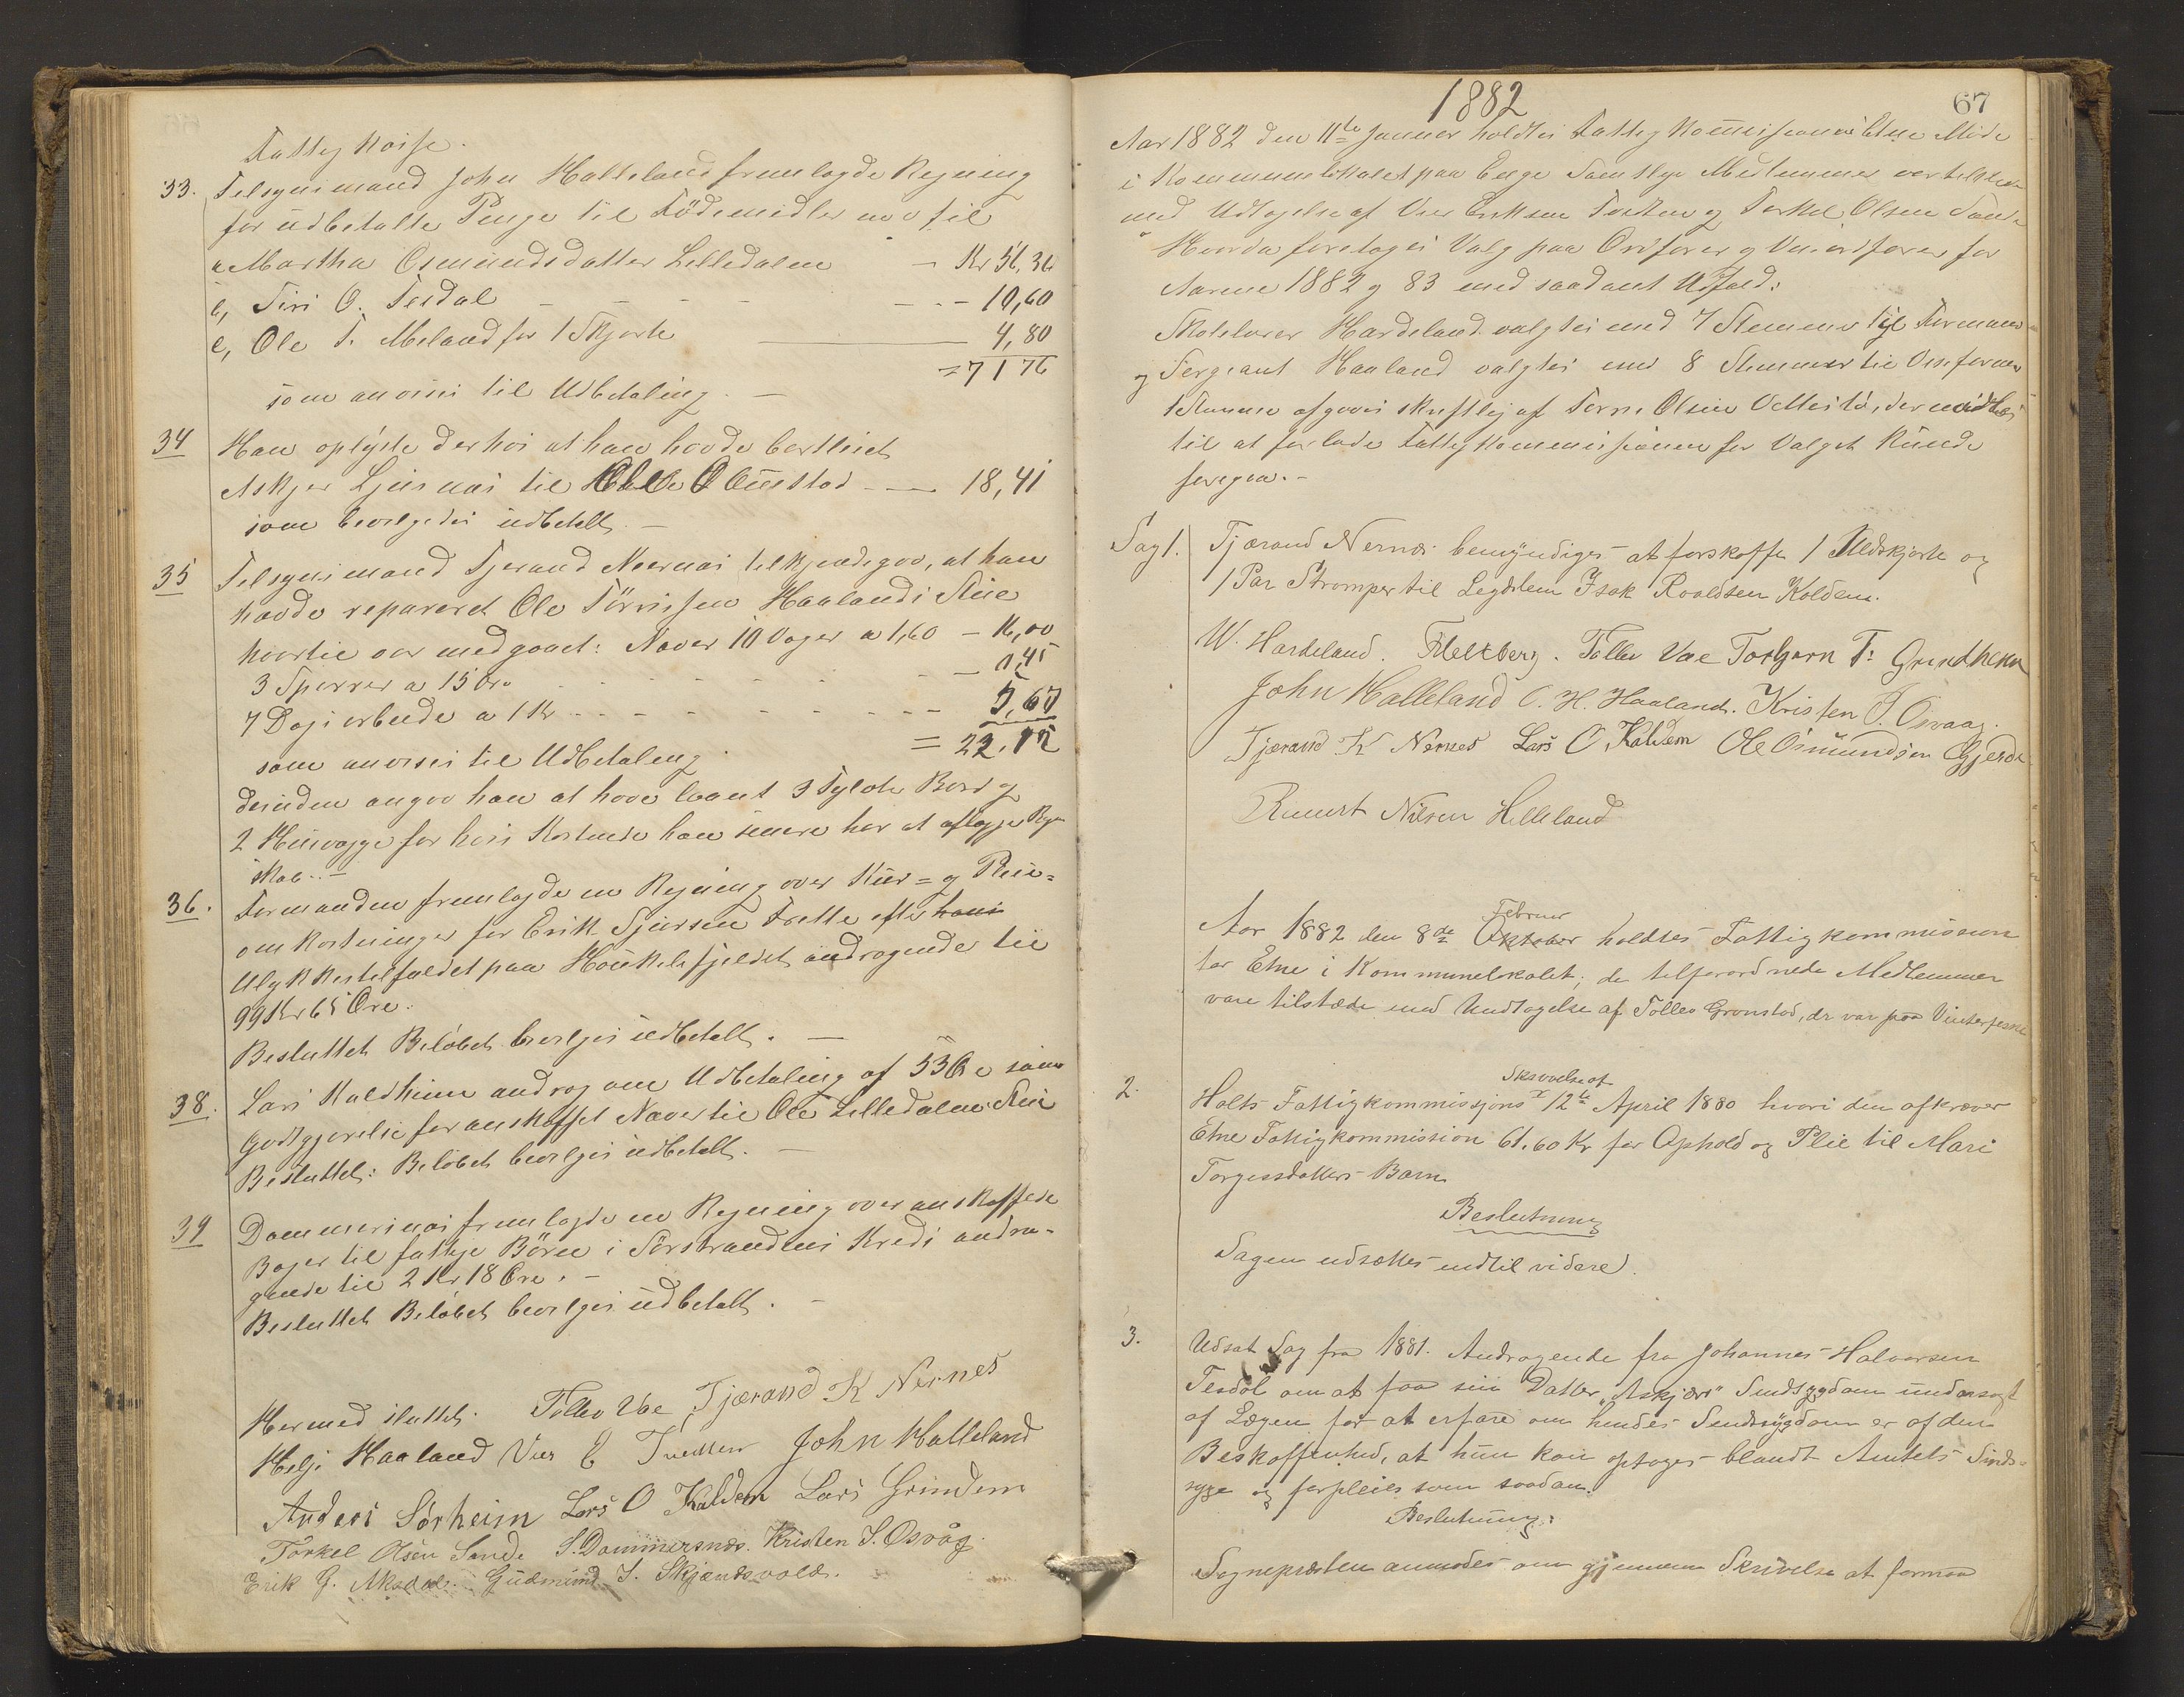 Fattigkasse.
33. Tilsynsmand John Halleland fremlagde Regning
for udbetalte Penge til Födemidler m v til
a Martha Osmundsdatter Lilledalen — Kr 56,36
b, Siri O. Tesdal — — — — 10,60
c, Ole T. Meland for 1 Skjorte — 4,80
= 71 76
som anvises til Udbetaling. —
34 Han oplyste derhos at han havde bortleiet
Askjer Ljusnæs til Ole O Ulmestad — 18,41
som bevilgedes udbetalt. —
35 Tilsynsmand Tjerand Nernæs tilkjendegav, at han
havde repareret Ole Törrissen Haalands Stue
hvortil var medgaaet: Naver 10 Voger a 1,60 — 16,00
3 Sperrer a 15 Öre — 0,45
7 Dagsarbeide a 1 Kr — 5,67
som anvises til Udbetaling = 22.12
desuden angav han at have laant 3 Tylvter Bord og
2 for hvis Kostende han senere har at aflægge Regn-
skab. —
36. Formanden fremlagde en Regning over Kur= og Pleie=
omkostninger for Erik Sjursen Frette efter hans
Ulykkestilfældet paa Houkelifjeldet andragende til
99 Kr 65 Öre.
Besluttet Belöbet bevilges udbetalt. —
38. Lars Kaldheim androg om Udbetaling af 53 Öre som
Godtgjörelse for anskaffet Naver til Ole Lilledalens Stue
Besluttet: Belöbet bevilges udbetalt. —
39 Dommersnæs fremlagde en Regning over anskaffede
Böger til fattige Börn i Sörstrandens Kreds andra-
gende til 2 Kr 18 Öre. —
Besluttet Belöbet bevilges udbetalt. —
Hermed sluttet. Tollev Vae Tjærand K Nernes
Helje Haaland Vier E John Halleland
Anders Sörheim Lars O Kaldem Lars Grindem
Torkel Olsen Sande S. Dommersnæs. Kristen S. Osvåg.
Erik G. Gudmund J. Skjændsvold.
1882 67
Aar 1882 den 11te Januar holdtes Fattigkommission i Etne Möde
i Kommunelokalet paa Enge Samtlige Medlemmer var tilstede
med Udtagelse af Vier Eriksen og Torkel Olsen Sande
Hvorda foretoges Valg paa Ordförer og Viceordförer for
Aarene 1882 og 83 med saadant Udfald:
Skolelærer Hardeland valgtes med 7 Stemmer til Formand
og Sergeant Haaland valgtes med 8 Stemmer til Viceformand
1 Stemme afgaves skriftlig af Olsen der nödtes
til at forlade Fattigkommissionen för Valget kunde
foregaa. —
Sag 1. Tjærand Nernæs bemyndiges at forskaffe 1 Uldskjorte og
1 Par Strömper til Lægdslem Isak Roaldsen Kaldem.
W. Hardeland. F. Meltberg. Tollev Vae Torbjørn T. Grindheim
John Halleland O. H. Haaland. Kristen S. Osvaag.
Tjærand K Nernes Lars O Kaldem Ole Osmundsen Gjerde
Nilsen Helleland
Februar
Aar 1882 den 8de Oktober holdtes Fattigkommission
for Etne i Kommunelokalet; de tilforordnede Medlemmer
vare tilstæde med Undtagelse af Tollev Grønstad, der var paa Vinterfiske
Skrivelse af
2. Holts Fattigkommissjons x 12te April 1880 hvori den afkræver
Etne Fattigkommission 61.60 Kr for Ophold og Pleie til Mari
Torgersdatters Barn
Beslutning
Sagen udsættes indtil videre.
3. Udsat Sag fra 1881. Andragende fra Johannes Halvorsen
Tesdal om at faa sin Datter „Askjærs" Sindsygdom undersøgt
af Lægen for at erfare om hendes Sindssygdom er af den
Beskaffenhed, at hun kan optages blandt Amtets Sinds-
syge og forpleies som saadan.
Beslutning:
Sognepræsten anmodes om gjennem Skrivelse at formaa